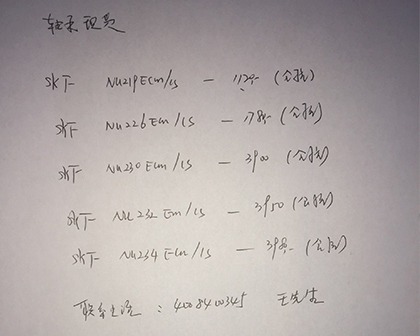 轴承现货
SKF NU219Ecm/cs — 1125- (公账)
SKF NU226Ecm/cs — 1785- (公账)
SKF NU230Ecm/cs — 3900 (公账)
SKF NU232Ecm/cs — 3950 (公账)
SKF NU234Ecm/cs — 398- (公账)
联系 : 4008400345 王先生